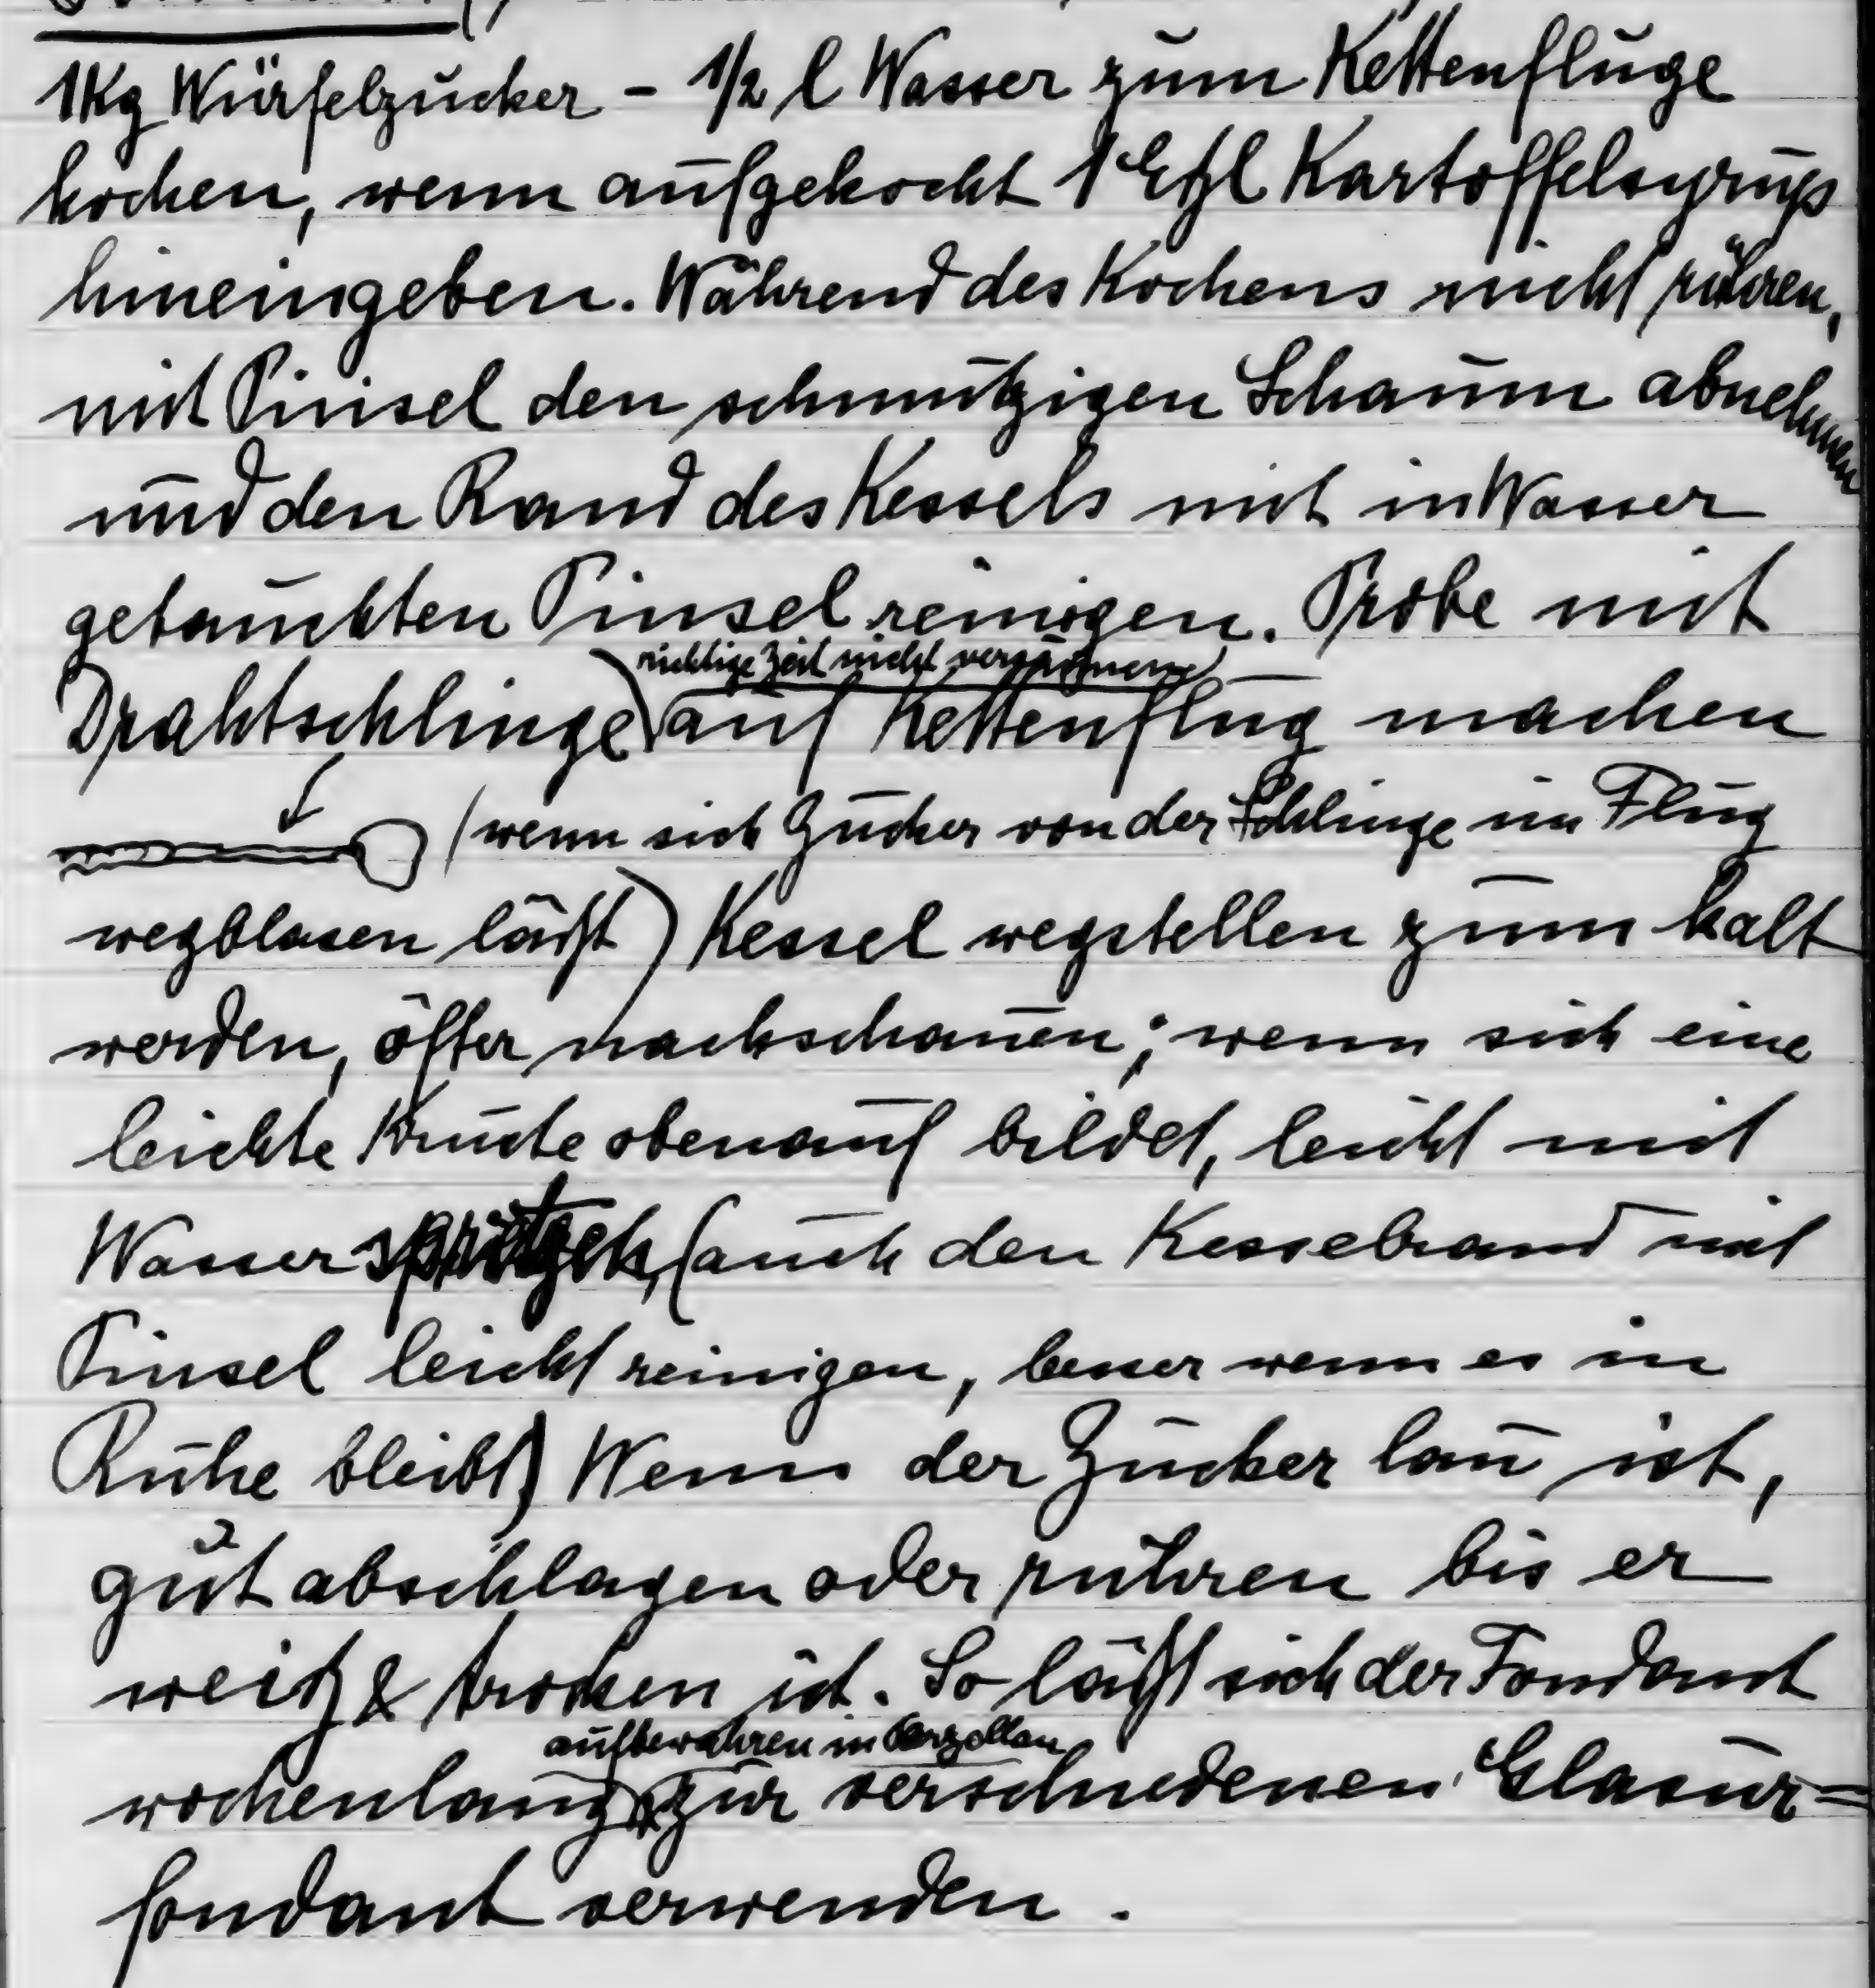 1 Kg Würfelzucker - 1/2 l Wasser zum Kettenfluge
kochen, wenn aufgekocht 1 Eßl Kartoffelsyrup
hineingeben. Während des Kochens nicht rühren,
mit Pinsel den schmutzigen Schaum abnehmen
und den Rand des Kessels mit in Wasser
getauchten Pinsel reinigen. Probe mit
richtige Zeit nicht versäumen
Drahtschlinge) auf Kettenflug machen
(wenn sich Zucker von der Schlinge im Flug
wegblasen läßt) Kessel wegstellen zum kalt
werden, öfter nachschauen; wenn sich eine
leichte Kruste obenauf bildet, leicht mit
Wasser spritzen, (auch den Kesselrand mit
Pinsel leicht reinigen, besser wenn es in
Ruhe bleibt) Wenn der Zucker lau ist,
gut abschlagen oder rühren bis er
weiß & trocken ist. So läßt sich der Fondant
aufbewahren in Porzellan
wochenlang zur verschiedenen Glasur=
fondant verwenden.